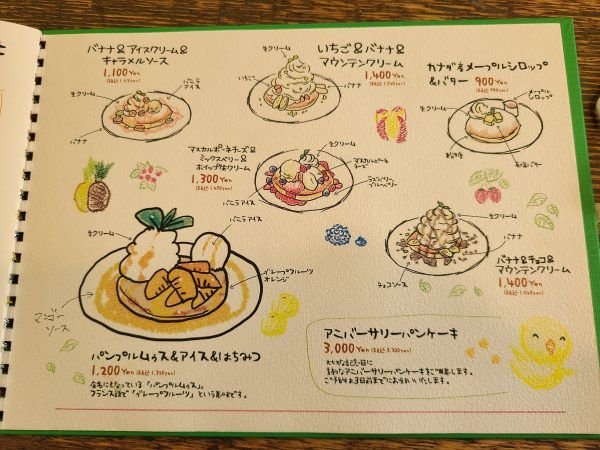 バナナ&アイスクリーム&
キャラメルソース
1,100Yen
生クリーム
バニラ
アイス
バナナ
いちご&バナナ&
マウンテンクリーム
1,400Yen
生クリーム
いちご
バナナ
カナダ産メープルシロップ
&バター 900Yen
(税込 990yen)
生クリーム
メープル
シロップ
マスカルポーネチーズ&
ミックスベリー&
ホイップ生クリーム
1,300Yen
(税込 1,430yen)
生クリーム
マスカルポーネ
チーズ
バニラアイス
生クリーム
バナナ
チョコソース
バナナ&チョコ&
マウンテンクリーム
1,400Yen
(税込 1,540yen)
生クリーム
バニラアイス
グレープフルーツ
オレンジ
ソース
パンプルムゥス&アイス&はちみつ
1,200Yen
店名にもなっている「パンプルムゥス」。
フランス語で「グレープフルーツ」という意味です。
アニバーサリーパンケーキ
3,000Yen (税込 3,300yen)
大切な記念日に
特別なアニバーサリーパンケーキをご用意します。
ご予約は3日前までにお願いいたします。